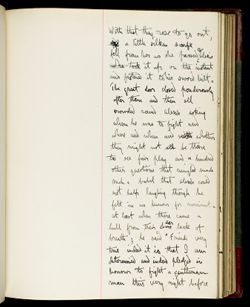 With that they rose to go out,
a little silken scarf
fell from her as she passed Alexis
who took it up on the instant
and fastened it to his sword hilt.
The great door closed ponderously
after them and then all
crowded round Alexis asking
whom he was to fight and
when and where and whether
they might not all be there
to see fair play and a hundred
other questions that mingled made
such a babel that Alexis could
not help laughing though he
felt in no humour for merriment.
At last when there came a
lull from their lack of
breath, he said "Friends very
true indeed it is that I am
determined and indeed pledged in
honour to fight a gentleman
man this very night before